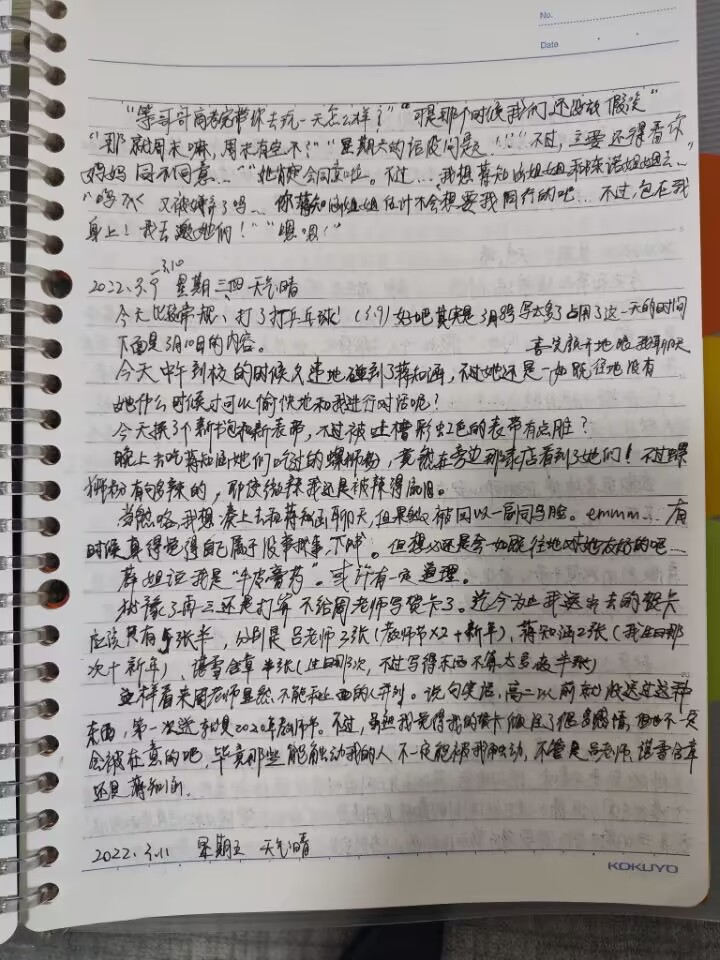 No.
Date
"等哥哥高考完带你去玩一天怎么样？" "可是那个时候我们还没放假诶"
"那就周末嘛，周末有空不？" "星期六的话没问题！！" "不过，主要还得看你
妈妈同不同意……" "她肯定会同意啦。不过……我想蒋知涵姐姐和姐姐
"呜 又被嫌弃了吗…… 你蒋知涵姐姐估计不会想要我同行的吧… 不过，包在我
身上！我去邀她们！" "嗯嗯！"
—3.10
2022.3.9 星期三、四 天气晴
今天比较常规，打了打乒乓球！(3.9) 好吧其实是3月8号写太多了占用了这一天的时间
下面是3月10日的内容。 喜笑颜开地跟我聊天
今天中午到校的时候久违地碰到了蒋知涵，不过她还是一如既往地没有
她什么时候才可以愉快地和我进行对话呢？
今天换了个新书包和新表带，不过被吐槽彩虹色的表带有点脏？
晚上去吃蒋知涵她们吃过的螺蛳粉，竟然在旁边那家店看到了她们！不过螺
蛳粉有够辣的，即使微辣我还是被辣得
当然咯，我想凑上去和蒋知涵聊天，但果然又被回以一副司马脸。emmm… 有
时候真得觉得自己属于没事找事、下贱。但想必还是会一如既往地对她友好的吧…
薛姐说我是"牛皮膏药"。或许有一定道理。
犹豫了再三还是打算不给周老师写贺卡了。迄今为止我送出去的贺卡
应该只有5张半，分别是吕老师3张(教师节×2+新年)，蒋知涵2张(我生日那
次+新年)、谌雪含章半张(生日那次，不过写得东西不算太多故半张)
这样看来周老师显然不能和上面的人并列。说句实话，高二以前都没送过这种
东西，第一次送就是2020年教师节。不过，虽然我觉得我的贺卡倾注了很多感情，但也不一定
会被在意的吧，毕竟那些能触动我的人不一定能被我触动，不管是吕老师、谌雪含章
还是蒋知涵。
2022.3.11 星期五 天气晴
KOKUYO